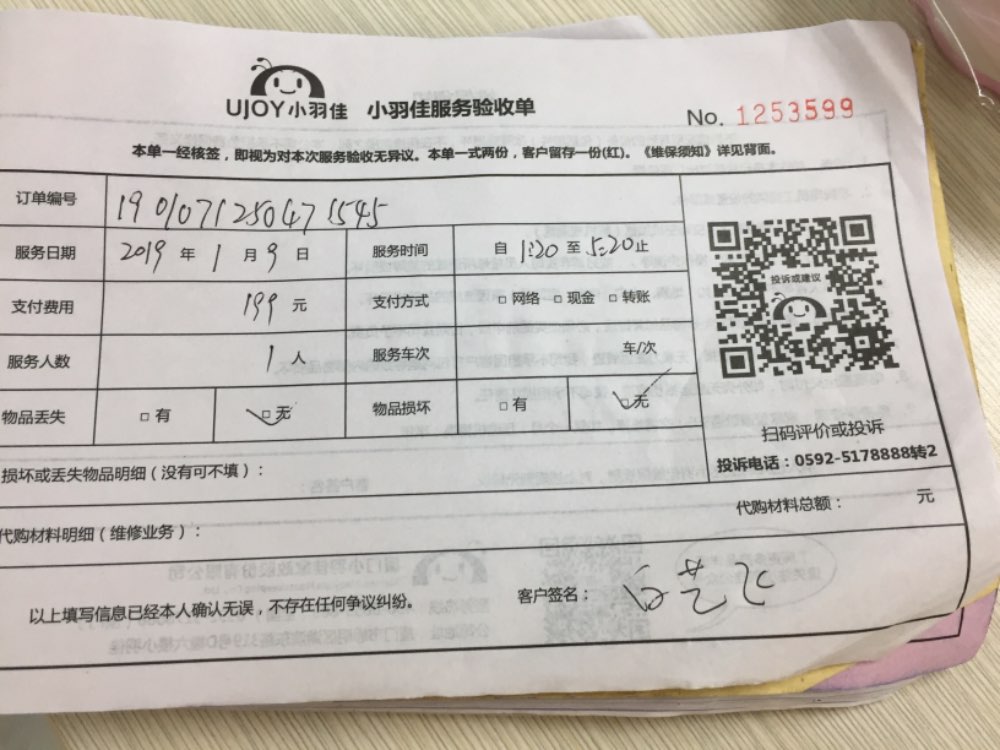 UJOY小羽佳 小羽佳服务验收单 No. 1253599
本单一经核签，即视为对本次服务验收无异议。本单一式两份，客户留存一份(红)。《维保须知》详见背面。
订单编号 190107125047 1545
服务日期 2019 年 1 月 9 日 服务时间 自 1:20 至 5:20 止
投诉或建议
支付费用 199 元 支付方式 □ 网络 □ 现金 □ 转账
服务人数 1 人 服务车次 车/次
物品丢失 □ 有 □ 无 物品损坏 □ 有 □ 无
扫码评价或投诉
投诉电话：0592-5178888转2
损坏或丢失物品明细（没有可不填）：
代购材料总额： 元
代购材料明细（维修业务）：
以上填写信息已经本人确认无误，不存在任何争议纠纷。 客户签名：